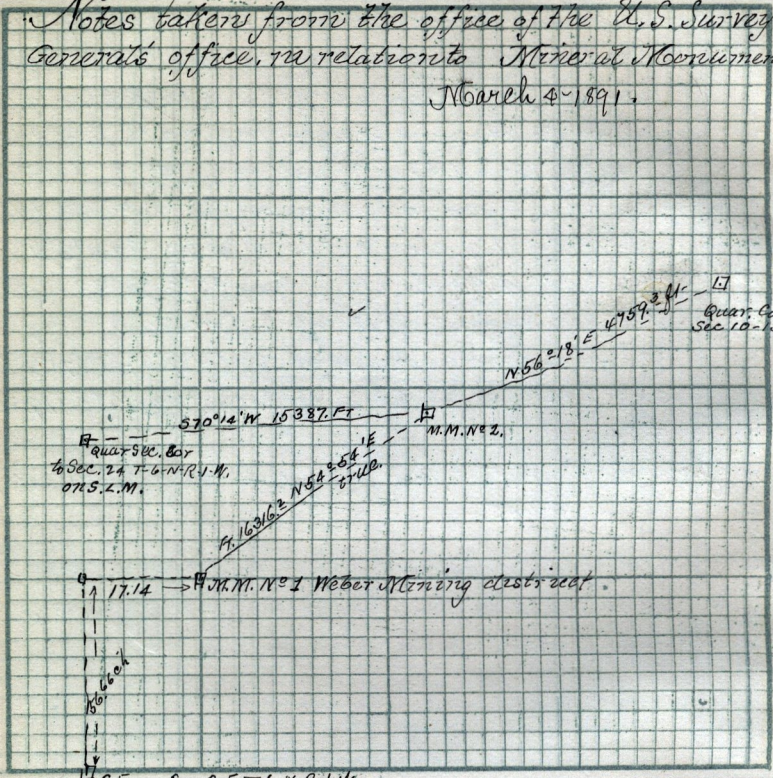 Notes taken from the office of the U.S. Survey
General's office, in relation to Mineral Monumen
March 4-1891.
Quar. Co
Sec 10-1
N 56°-18' E 4759.3 ft
S 70° 14' W 15387. FT
M.M. Nº 2.
Quar Sec. Cor
to Sec. 24 T-6-N-R-1-W.
on S.L.M.
Ft. 16316.2 N 54°-54' E
true.
17.14
M.M. Nº 1 Weber Mining district
56.66 ch